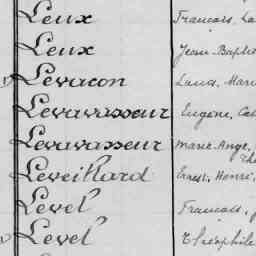 Leux François,
Leux Jean Baptis
Levacon Louis, Mari
Levavasseur Eugène, Cel
Levavasseur Marie Ange,
Léveillard Ernest, Henri,
Level François,
Level Théophile